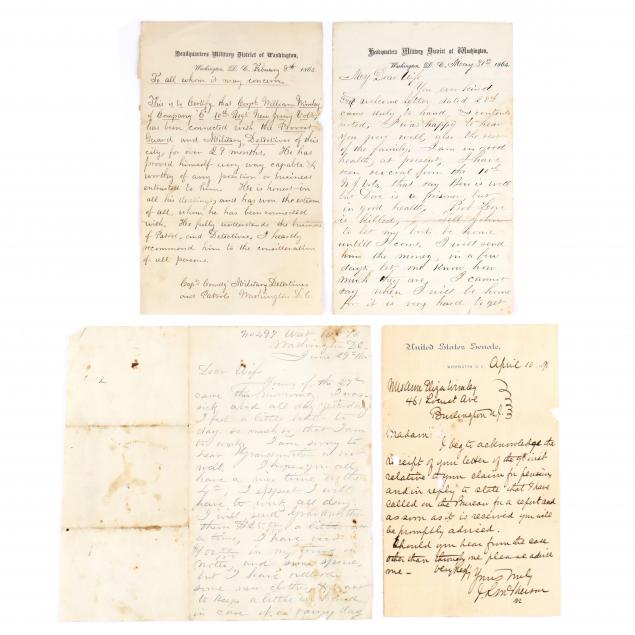 Headquarters Military District of Washington,
Washington, D. C., February 9th 1865
To all whom it may concern
This is to Certify, that Corpl William Wimley
of Company "E" 10th Regt New Jersey Vols
has been connected with the Provost
Guard and Military Detectives of this
city, for over 29 months. He has
proved himself very capable &
worthy of any position or business
entrusted to him. He is honest in
all his dealings, and has won the esteem
of all, whom he has been connected
with. He fully understands the business
of Patrol, and Detectives, I heartily
recommend him to the consideration
of all persons.
Capt Comdg Military Detectives
and Patrols Washington D.C.
Headquarters Military District of Washington,
Washington, D. C., May 31st 1864
My Dear Wife
Your kind
& welcome letter dated 28th
came duly to hand & contents
noted, I was happy to hear
you were well, also the rest
of the family, I am in good
health, at present, I have
seen several from the 10th
N.J. Vols that say Ben is well
but Dave is a prisoner but
in good health, Bob
is killed, tell John
to let my boots be home
untill I come, I will send
him the money, in a few
days let me know how
much they are I cannot
say when I will be home
for it is very hard to get
No 297 West
Washington D.C.
June 29th
Dear Wife
Yours of the 27th
came this morning, I was
sick abed all day yesterday
I feel a little better to
day so much so that I am
to work, I am sorry to
hear Grandmother is not
well, I hope you all
have a nice time on the
4th, I expect I will
have to work all day.
I will send Grandmother
a little
a time, I have
in my
Notes, and some specie,
but I have
some new clothes, I want
to keep a little in hand
in case of a rainy day
United States Senate,
WASHINGTON, D. C., April 10
Mrs Anne Eliza Wimley
461 Locust Ave
Burlington N.J.
Madam: I beg to acknowledge the
receipt of your letter of the 9th inst
relative to your claim for pension,
and in reply to state that I have
called on the Bureau for a report and
as soon as it is received you will
be promptly advised.
Should you hear from the case
other than through me please advise
me— Very Resp
Yours truly
J R McPherson